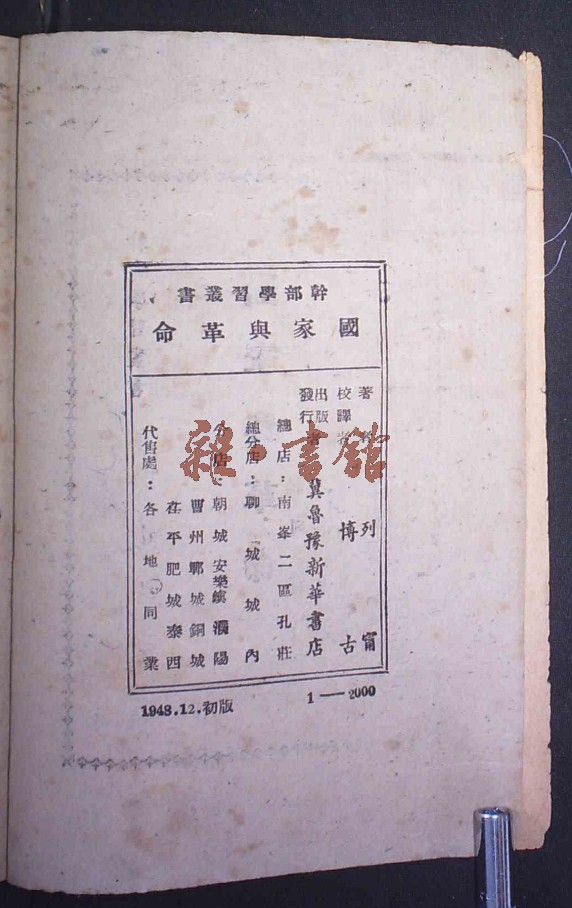 幹部學習叢書
國家與革命
著者 列甯
校譯者 博古
出版發行者 冀魯豫新華書店
總店：南峯二區孔莊
總分店：聊城城內
分店：朝城安樂鎮濮陽
曹州鄆城銅城
茌平肥城泰西
代售處：各地同業
1948.12.初版
1——2000
書館